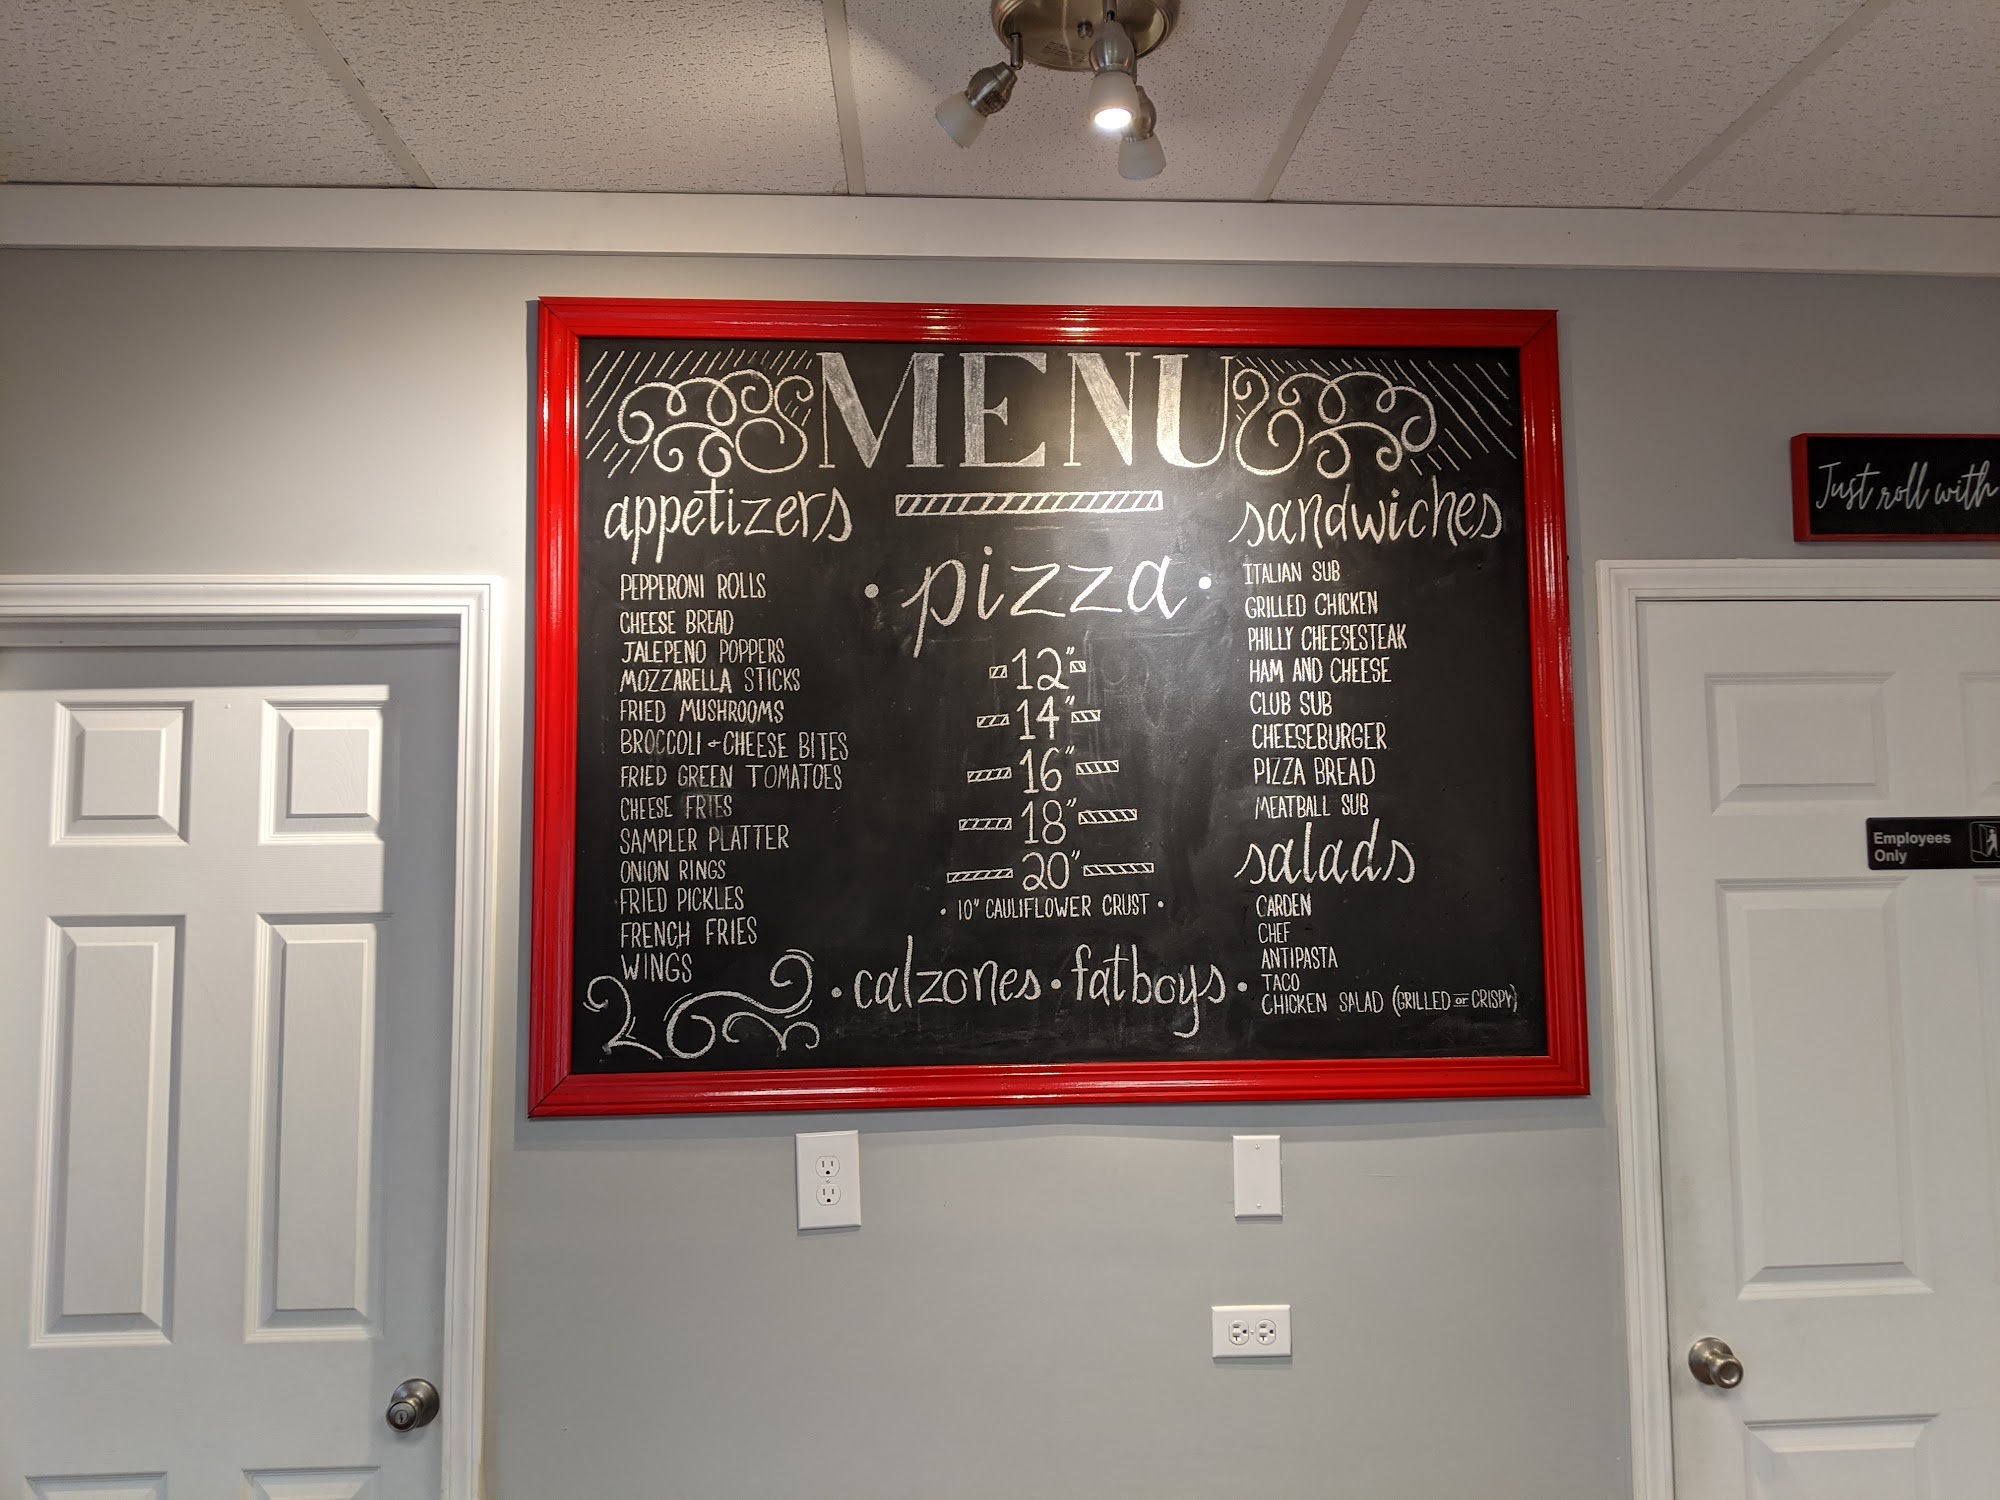 MENU
appetizers
PEPPERONI ROLLS
CHEESE BREAD
JALEPENO POPPERS
MOZZARELLA STICKS
FRIED MUSHROOMS
BROCCOLI + CHEESE BITES
FRIED GREEN TOMATOES
CHEESE FRIES
SAMPLER PLATTER
ONION RINGS
FRIED PICKLES
FRENCH FRIES
WINGS
• pizza •
12"
14"
16"
18"
20"
• 10" CAULIFLOWER CRUST •
• calzones • fatboys •
sandwiches
ITALIAN SUB
GRILLED CHICKEN
PHILLY CHEESESTEAK
HAM AND CHEESE
CLUB SUB
CHEESEBURGER
PIZZA BREAD
MEATBALL SUB
salads
GARDEN
CHEF
ANTIPASTA
TACO
CHICKEN SALAD (GRILLED or CRISPY)
Just roll with
Employees
Only